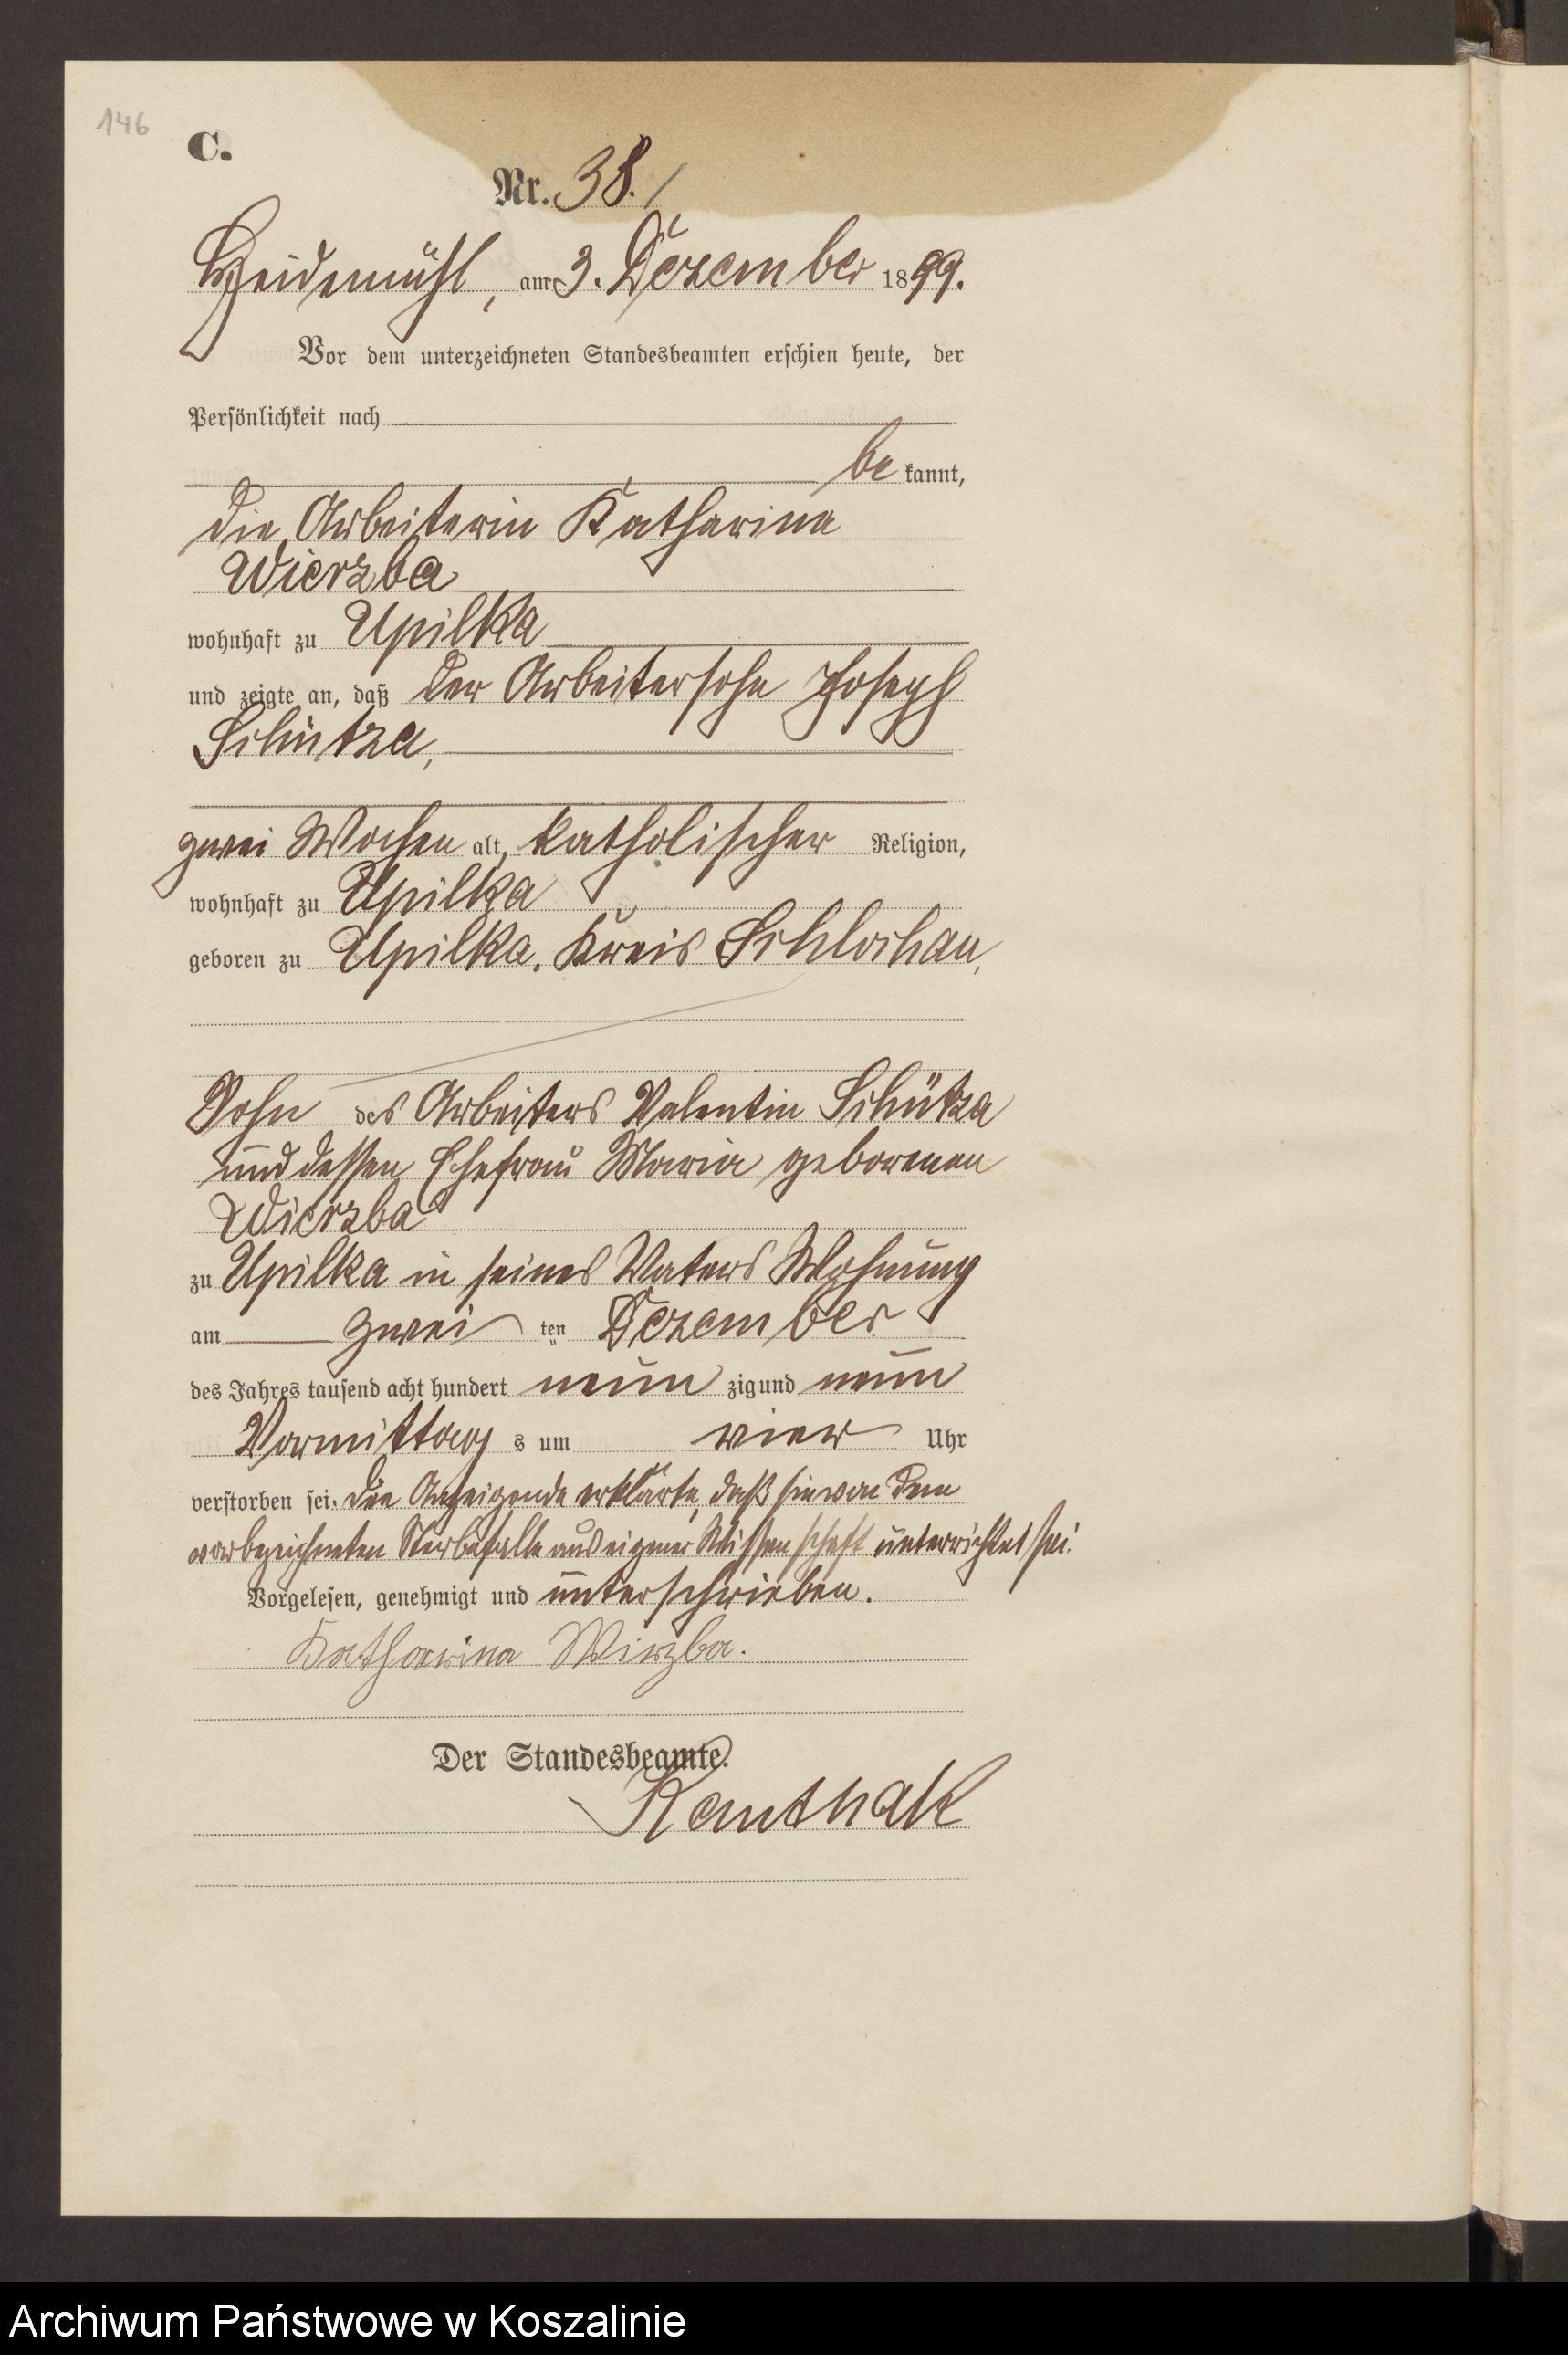 146
C.
Nr. 38.
Heidemühl, am 3. Dezember 1899.
Vor dem unterzeichneten Standesbeamten erschien heute, der
Persönlichkeit nach
be kannt,
die Arbeiterin Katharina
Wierzba
wohnhaft zu Upilka
und zeigte an, daß der Arbeitersohn Joseph
Schütza,
zwei Wochen alt, katholischer Religion,
wohnhaft zu Upilka
geboren zu Upilka, Kreis Schlochau,
Sohn des Arbeiters Valentin Schütza
und dessen Ehefrau Maria geborenen
Wierzba
zu Upilka in seines Vaters Wohnung
am zwei ten Dezember
des Jahres tausend acht hundert neun zig und neun
Vormittag s um vier Uhr
verstorben sei. Die Anzeigende erklärte, daß sie von dem
vorbezeichneten Sterbefalle aus eigener Wissenschaft unterrichtet sei.
Vorgelesen, genehmigt und unterschrieben.
Katharina Wirzba.
Der Standesbeamte.
Archiwum Państwowe w Koszalinie